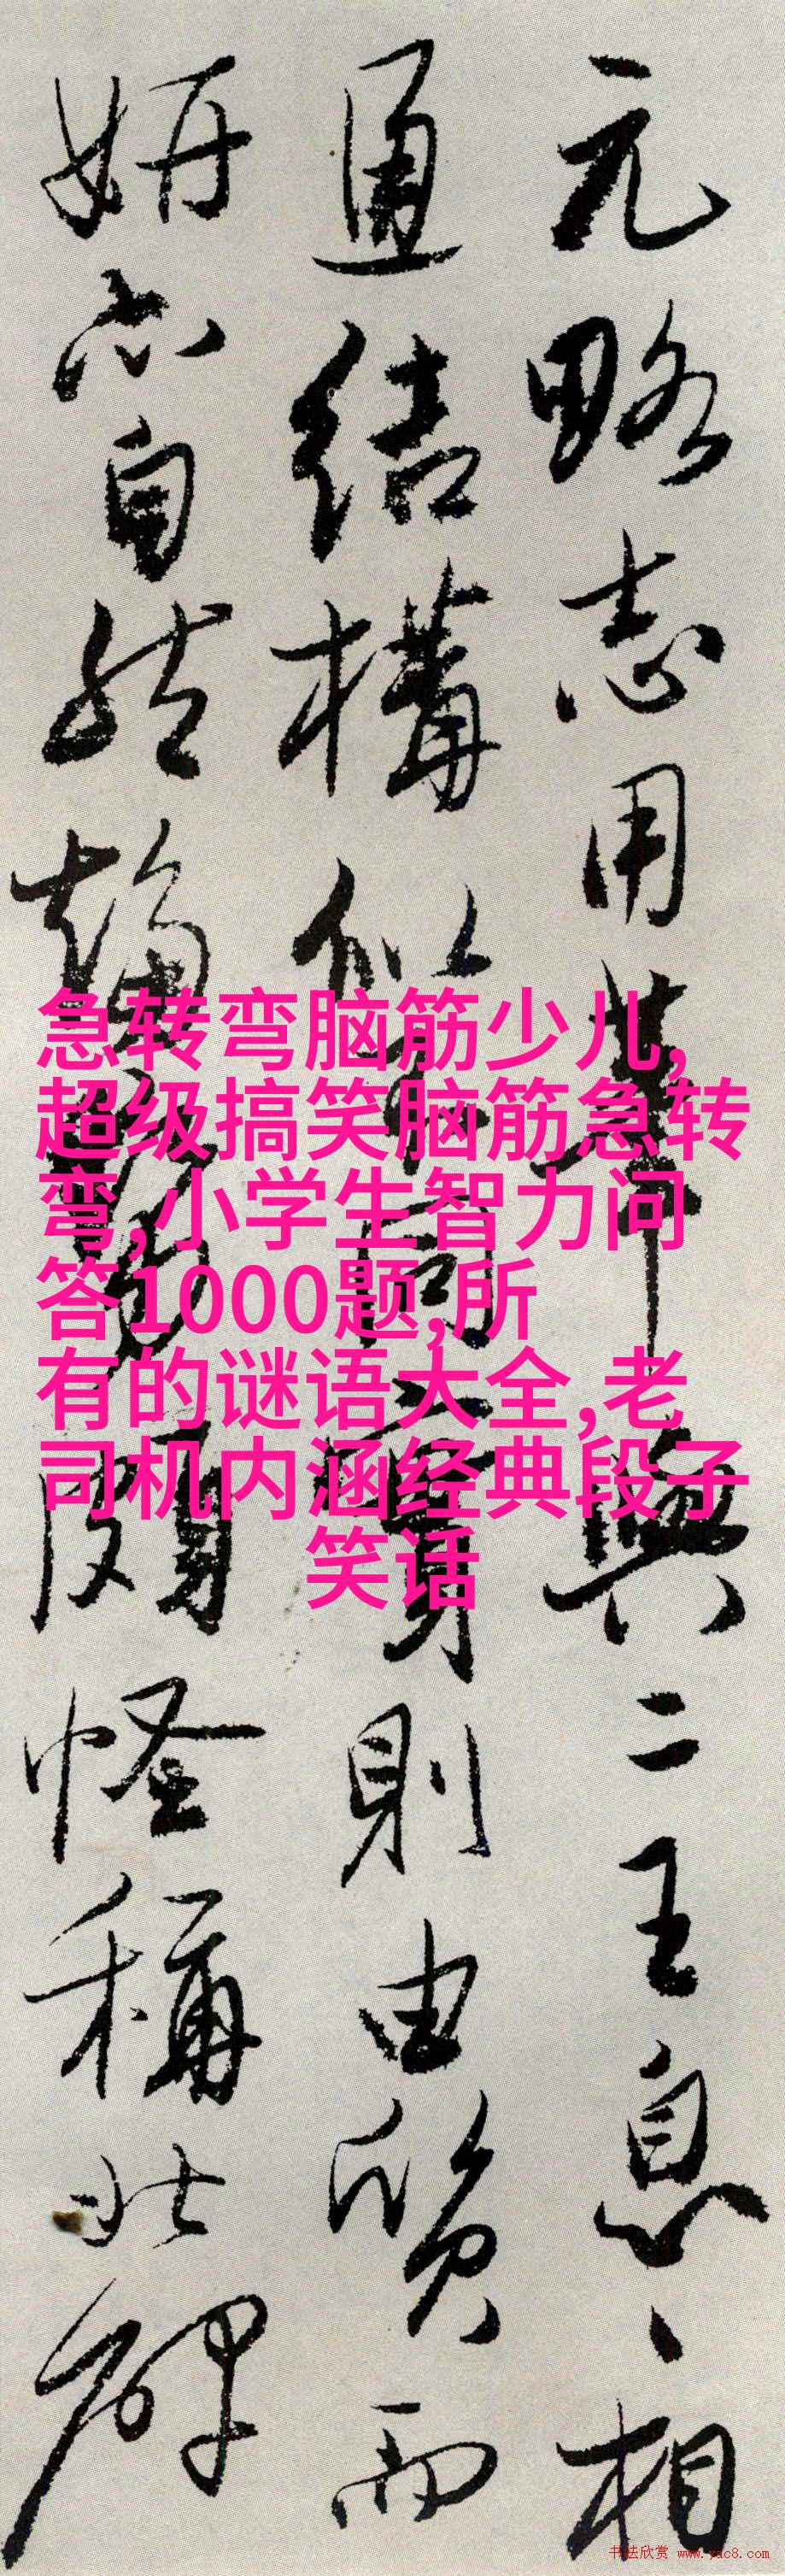 元略志用筆與二王息〻相
通結構
則由質而
妍亦自然
頗怪稱北碑
急转弯脑筋少儿,
超级搞笑脑筋急转
弯,小学生智力问
答1000题,所
有的谜语大全,老
司机内涵经典段子
笑话
书法欣赏 www.yac8.com